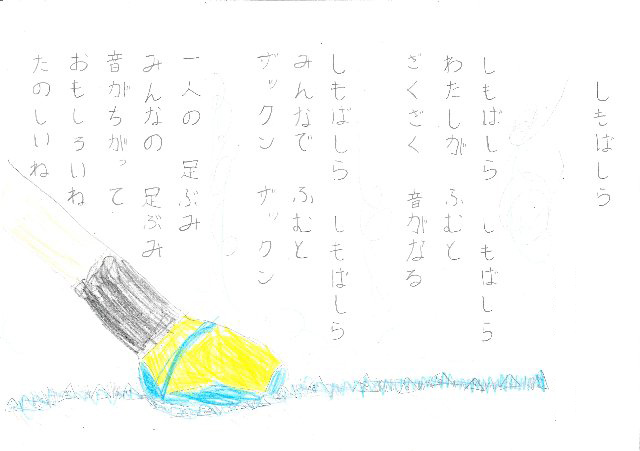 しもばしら
しもばしら しもばしら
わたしが ふむと
ざくざく 音がなる
しもばしら しもばしら
みんなで ふむと
ザックン ザックン
一人の 足ぶみ
みんなの 足ぶみ
音がちがって
おもしろいね
たのしいね